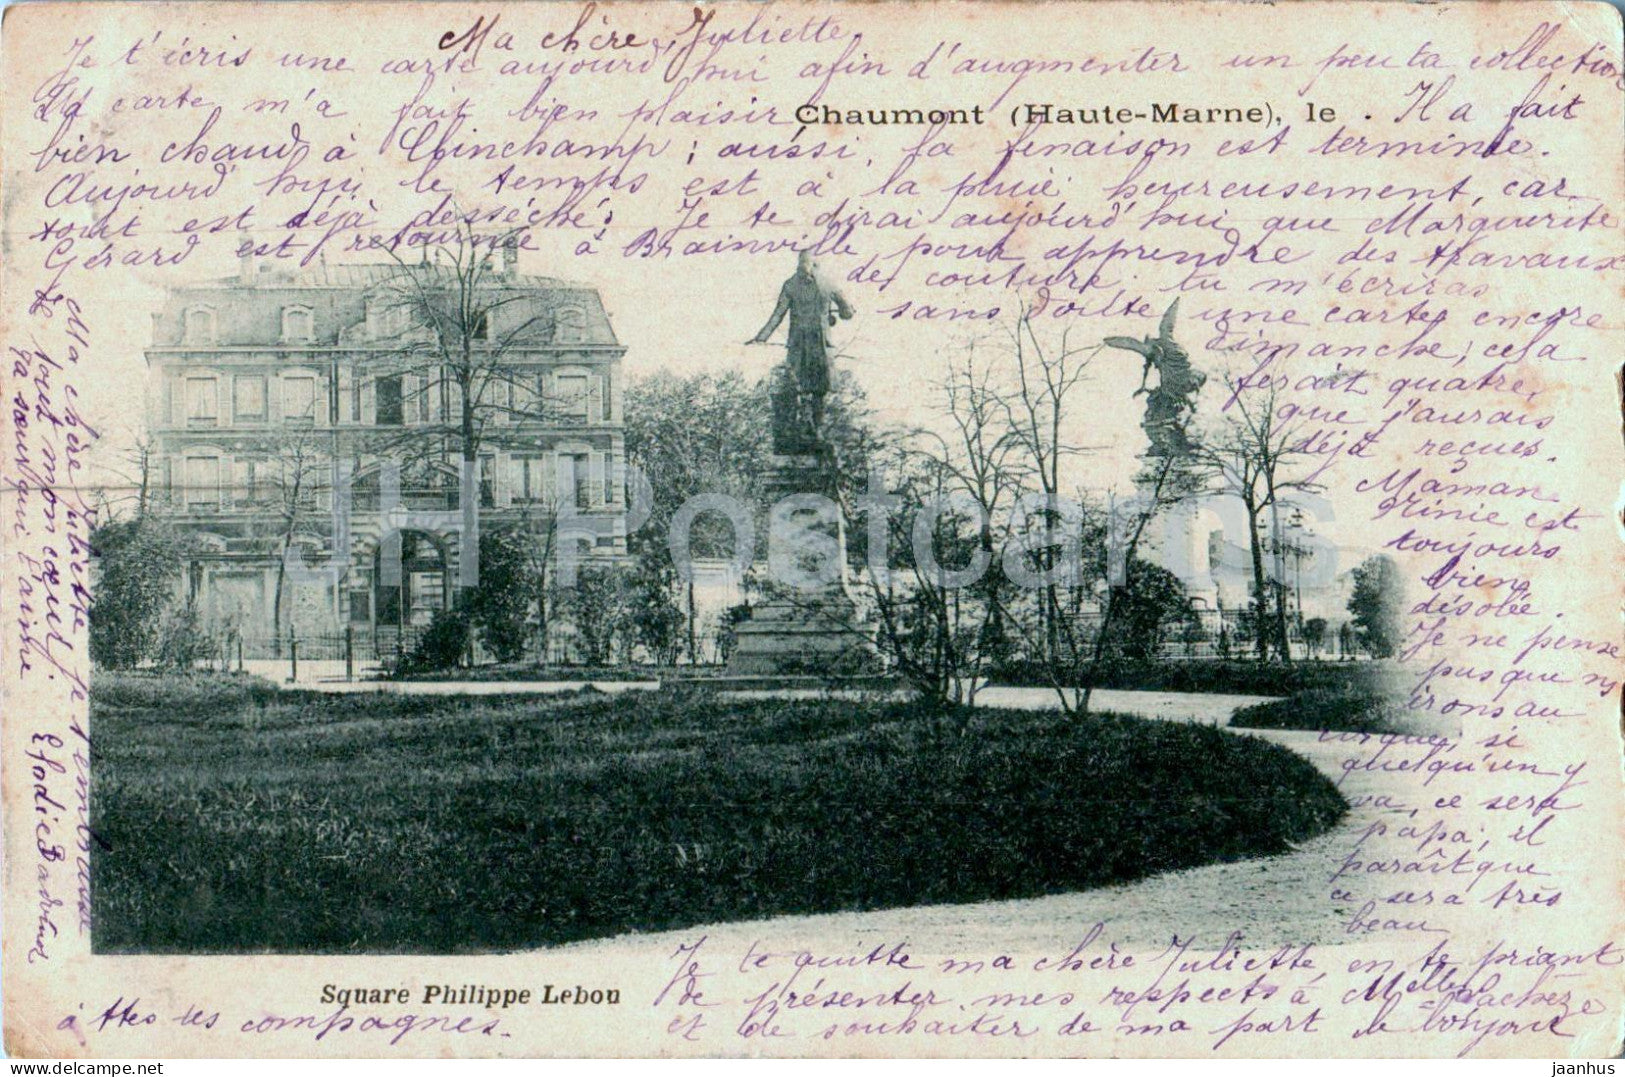 Ma chère Juliette,
Je t'écris une carte aujourd'hui afin d'augmenter un peu ta collection
Ta carte m'a fait bien plaisir,
Chaumont (Haute-Marne), le .
Il a fait
bien chaud à Clinchamp ; aussi, la fenaison est terminée.
Aujourd'hui, le temps est à la pluie heureusement, car
tout est déjà desséché ; Je te dirai aujourd'hui que Marguerite
Gérard est retournée à Brainville pour apprendre des travaux
de couture, tu m'écriras
sans doute une carte encore
Dimanche, cela
ferait quatre,
que j'aurais
déjà reçues.
Maman
Ninie est
toujours
bien
désolée.
Je ne pense
pas que ns
irons au
cirque, si
quelqu'un y
va, ce sera
papa, il
paraît que
ce sera très
beau
Je te quitte ma chère Juliette, en te priant
de présenter mes respects à Melle
et de souhaiter de ma part le bonjour
à ttes tes compagnes.
Ma chère Juliette je t'embrasse
de tout mon cœur.
Ta sœur qui t'aime
Square Philippe Lebon
JH Postcards
jaanhus @ delcampe.net